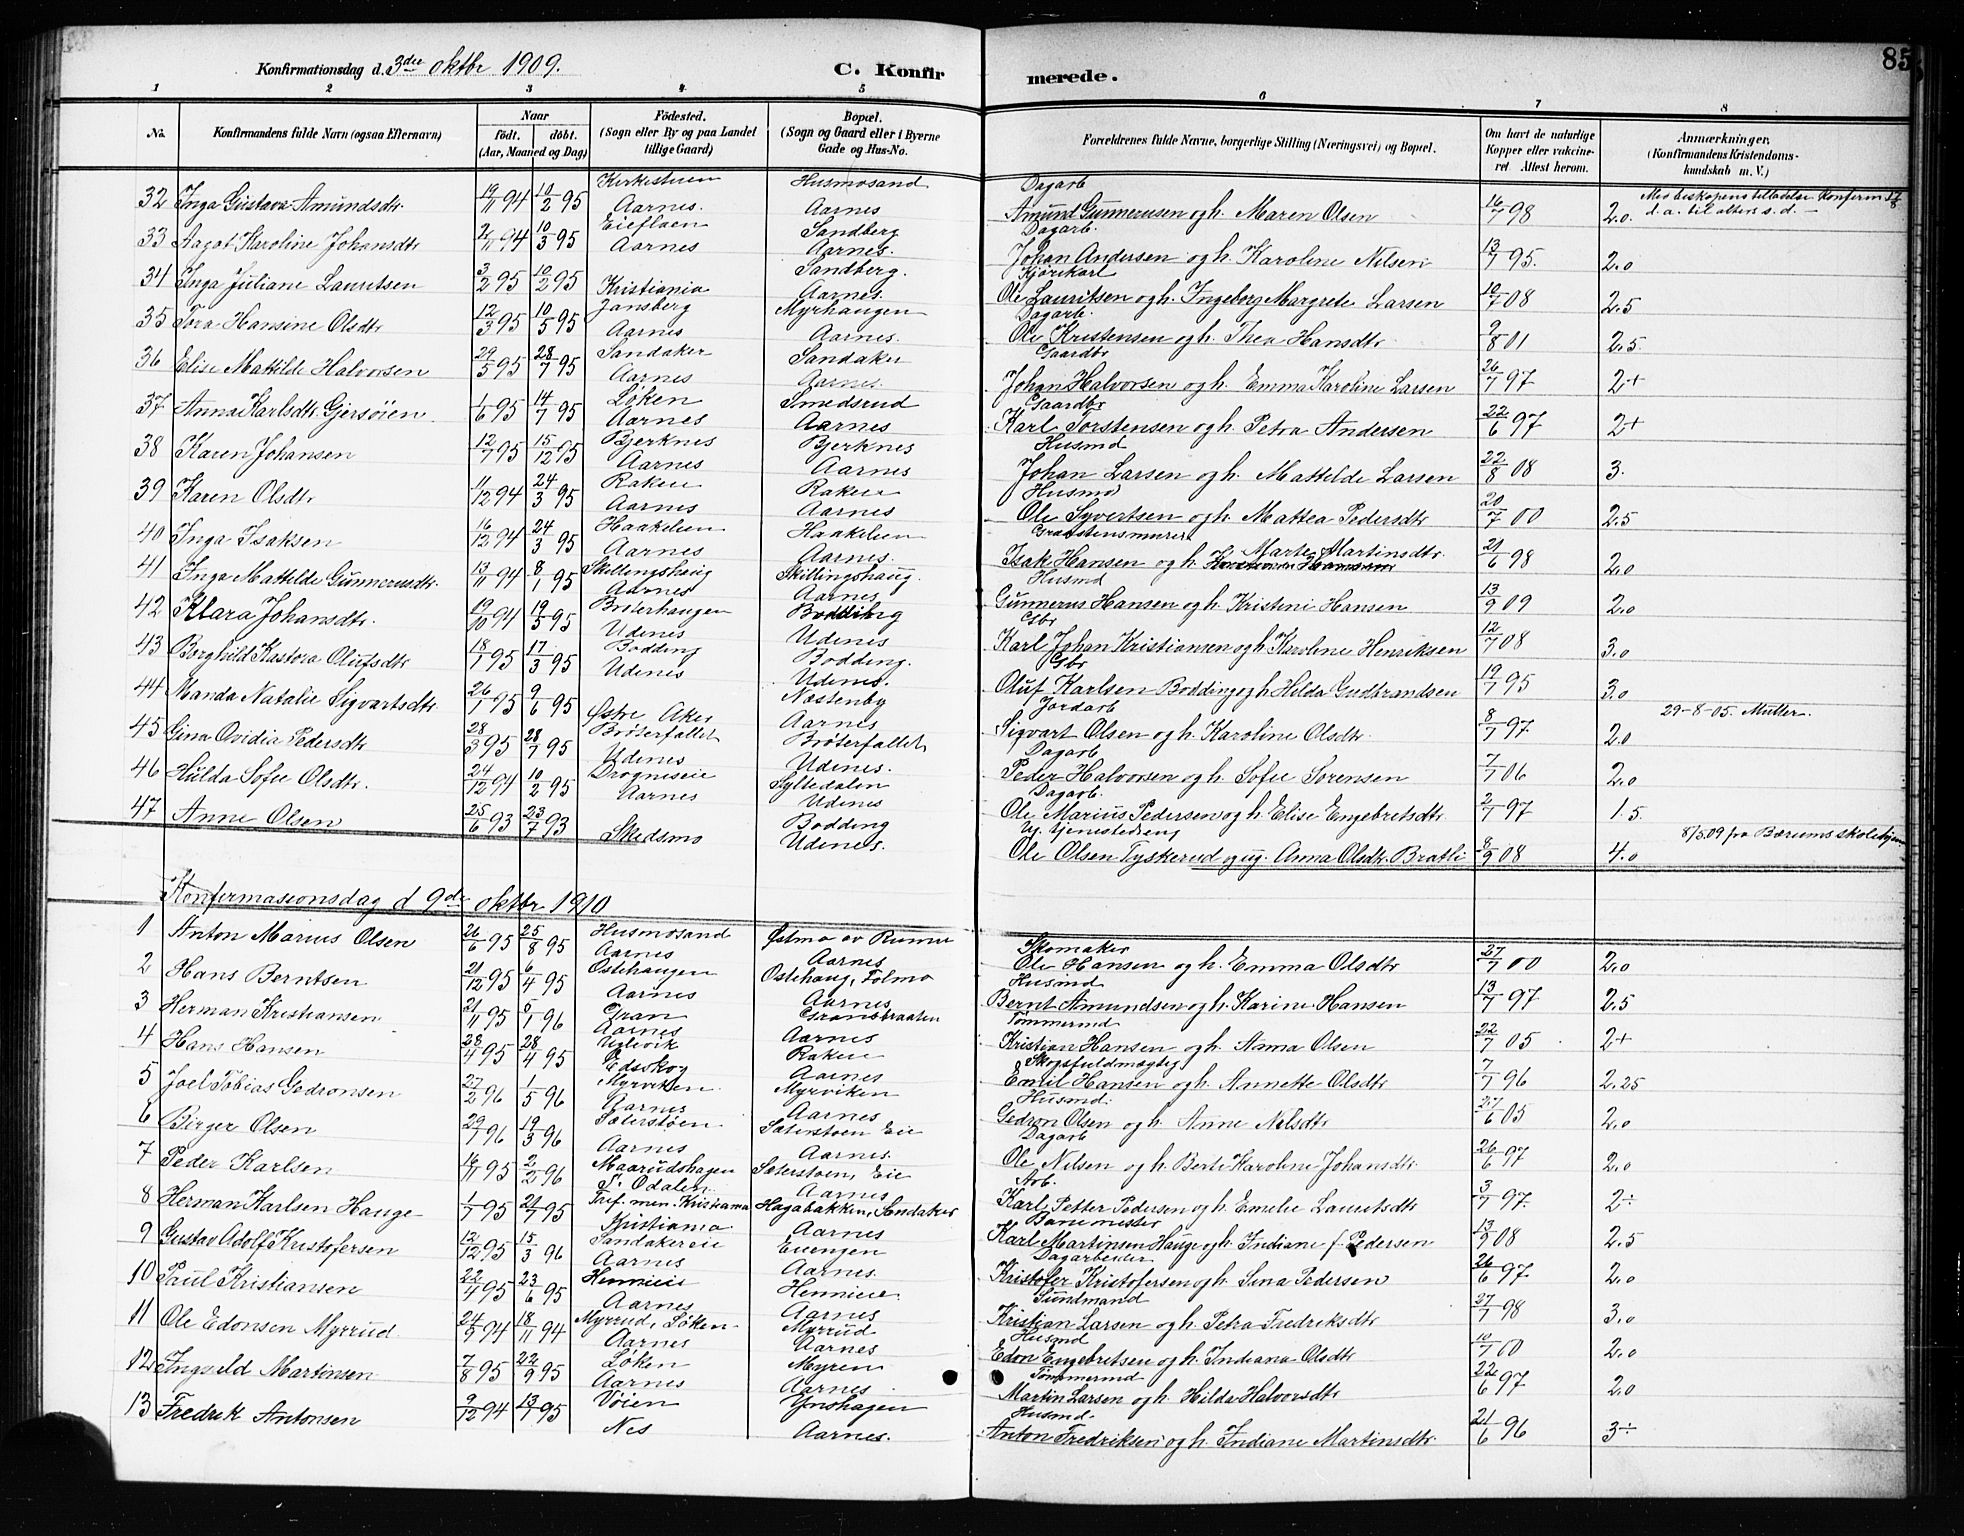 85
Konfirmationsdag d. 3die oktbr 1909. C. Konfirmerede.
1 2 3 4 5 6 7 8
No. Konfirmandens fulde Navn (ogsaa Efternavn) Naar födt. döbt. (Aar, Maaned og Dag) Födested. (Sogn eller By og paa Landet tillige Gaard) Bopæl. (Sogn og Gaard eller i Byerne Gade og Hus-No. Forældrenes fulde Navne, borgerlige Stilling (Næringsvei) og Bopæl. Om havt de naturlige Kopper eller vakcineret Attest herom. Anmærkninger, (Konfirmandens Kristendomskundskab m. V.)
32 Inga Gustava Amundsdtr. 19/11 94 10/2 95 Kirkestuen Aarnes. Husmosand Aarnes Dagarb Amund Gunnerusen og h. Maren Olsen 16/7 98 2.0 Med biskopens tilladelse Konfirm 17/8 d.a. til alters s.d. –
33 Aagot Karoline Johansdtr 2/11 94 10/3 95 Eiefloen Aarnes Sandberg Aarnes. Dagarb. Johan Andersen og h. Karoline Nilsen 13/7 95. 2.0
34 Inga Juliane Lauritsen 3/2 95 10/2 95 Kristiania Sandberg. Aarnes. Kjörekarl Ole Lauritsen og h. Ingeborg Margrete Larsen 10/7 08 2.5
35 Tora Hansine Olsdtr 12/3 95 10/5 95 Jansberg Aarnes Myrhaugen Aarnes. Dagarb. Ole Kristensen og h. Thea Hansdtr 9/8 01 2.5
36 Elise Mattilde Halvorsen 29/5 95 28/7 95 Sandaker Aarnes Sandaker Aarnes. Gaardbr Johan Halvorsen og h. Emma Karoline Larsen 26/7 97 2+
37 Anna Karlsdtr. Gjersöien 1/6 95 14/7 95 Löken Aarnes Smedsrud Aarnes Gaardbr Karl Torstensen og h. Petra Andersen 22/6 97 2+
38 Karen Johansen 12/7 95 15/12 95 Bjerknes Aarnes Bjerknes Aarnes Husmd Johan Larsen og h. Mattilde Larsen 22/8 08 3.
39 Karen Olsdtr 11/12 94 24/3 95 Rakeie Aarnes Rakeie Aarnes Husmd Ole Syvertsen og h. Mattea Pedersdtr 20/7 00 2.5
40 Inga Isaksen 16/12 94 24/3 95 Haakelien Aarnes Haakelien Aarnes. Graastensmurer Isak Hansen og h. Marte Martinsdtr. 21/6 98 2.0
41 Inga Mattilde Gunnerusdtr. 13/11 94 8/1 95 Skillingshaug Aarnes Skillingshaug. Aarnes. Husmd Gunnerus Hansen og h. Kristine Hansen 13/9 09 2.0
42 Klara Johansdtr. 19/10 94 19/5 95 Bröterhaugen Udenes Bodding Udenes Gbr Karl Johan Kristiansen og h. Karoline Henriksen 12/7 08 3.0
43 Borghild Kastora Olufsdtr 18/1 95 17/3 95 Bodding Udenes Bodding. Udenes. Gbr Oluf Karlsen Bodding og h. Hilda Gudbrandsen 19/7 95 3.0
44 Manda Natalie Sigvartsdtr. 26/1 95 9/6 95 Östre Aker Næstenby Aarnes Jordarb Sigvart Olsen og h. Karoline Olsdtr. 8/7 97 2.0 29-8-05. Mutter.
45 Gina Ovidia Pedersdtr 28/3 95 28/7 95 Bröterfallet Udenes Bröterfallet Udenes. Dagarb Peder Halvorsen og h. Sofie Sorensen 7/7 06 2.0
46 Hulda Sofie Olsdtr. 24/12 94 10/2 95 Drogneseie Aarnes Syltedalen Udenes Dagarb. Ole Marius Pedersen og h. Elise Engebretsdtr. 2/7 97 1.5
47 Anne Olsen 25/6 93 23/7 93 Skedsmo Bodding Udenes. Ug. tjenestedreng Ole Olsen Tyskerud og ug. Anna Olsdtr. Bratli 8/9 08 4.0 8/5 09 fra Bærums skolehjem
Konfirmasionsdag d 9de oktbr 1910
1 Anton Marius Olsen 26/6 95 25/8 95 Husmosand Aarnes Östmo av Runni Aarnes Skomaker Ole Hansen og h. Emma Olsdtr 27/7 00 2.0
2 Hans Berntsen 21/12 95 6/4 95 Ostehaugen Aarnes Ostehaug, Folmo Aarnes Husmd Bernt Amundsen og h. Karine Hansen 13/7 97 2.5
3 Herman Kristiansen 21/11 95 5/1 96 Gran Aarnes Gransbraaten Aarnes Tömmermd Kristian Hansen og h. Anna Olsen 22/7 05 2+
4 Hans Hansen 28/4 95 28/4 95 Uglvik Edskog Rakeie Aarnes Skogsfuldmægtig Emil Hansen og h. Annette Olsdtr 7/7 96 2.25
5 Joel Tobias Gedronsen 27/2 96 1/5 96 Myrviken Aarnes Myrviken Aarnes Husmd. Gedron Olsen og h. Anne Nilsdtr 27/6 05 2.0
6 Birger Olsen 29/1 96 19/3 96 Sæterstöen Aarnes Sæterstöen Eie Aarnes. Dagarb Ole Nilsen og h. Berte Karoline Johansdtr. 26/6 97 2.0
7 Peder Karlsen 16/11 95 2/2 96 Maarudshagen S. Odalen. Sæterstöen, Eie Aarnes Arb. Karl Petter Pedersen og h. Emelie Lauritsdtr 3/7 97. 2÷
8 Herman Karlsen Hauge 1/7 95 21/7 95 Tref. men. Kristiania Kristiania Hagabakken, Sandaker Aarnes Banemester Karl Martinsen Hauge og h. Indiane f. Pedersen 13/7 08 2.5
9 Gustav Adolf Kristofersen 12/12 95 15/3 96 Sandakereie Aarnes Euengen Aarnes. Dagarbeider Kristofer Kristofersen og h. Sina Pedersen 26/6 97 2.0
10 Paul Kristiansen 22/4 95 23/6 95 Hennieie Aarnes Hennieie. Aarnes Sundmand Kristian Larsen og h. Petra Fredriksdtr 27/7 98 3.0
11 Ole Edonsen Myrrud 24/9 94 18/11 94 Myrrud, Löken. Aarnes Myrrud Aarnes Husmd Edon Engebretsen og h. Indiana Olsdtr 10/7 00 2.0
12 Ingvald Martinsen 7/8 95 22/9 95 Löken Aarnes Myren Aarnes. Tömmermd Martin Larsen og h. Hilda Halvorsdtr 22/6 97 2.0
13 Fredrik Antonsen 9/12 94 13/1 95 Vöien Nes Ynshagen Aarnes. Husmd. Anton Fredriksen og h. Indiane Martinsdtr. 21/6 96 3÷